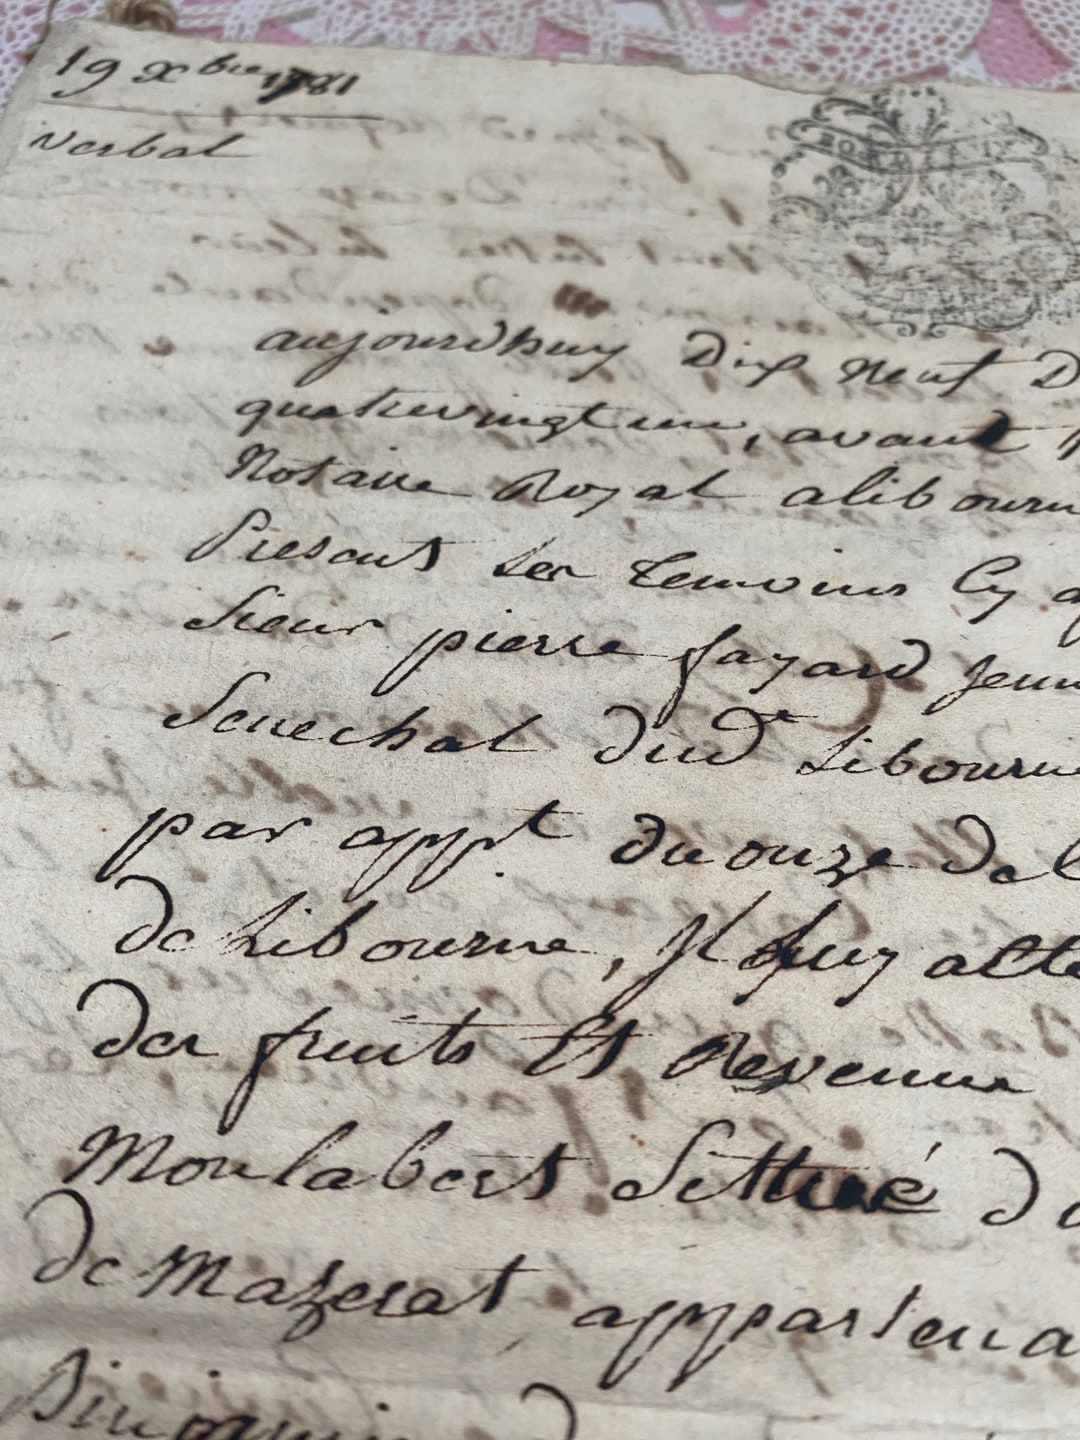 19 xbre 1781
verbal
BORDEAUX
aujourdhuy Dix Neuf D
quatrevingt un, avant
Notaire Royal alibourn
Presents les temoins Cy
Sieur pierre fayard
Senechal dud. Libourn
par appt. du onze de l
de Libourne, Il
des fruits Et Revenu
Moulaberts Sittué d
de Mazerat appartena